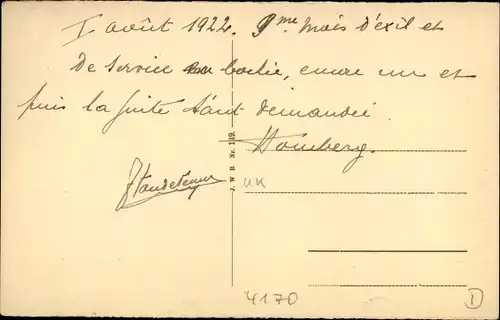 I août 1922. 9me mois d'exil et
de service en bochie, encore un et
puis la fuite tant demandée.
Homberg.
J. W. B. Nr. 149.
UK
4170
D